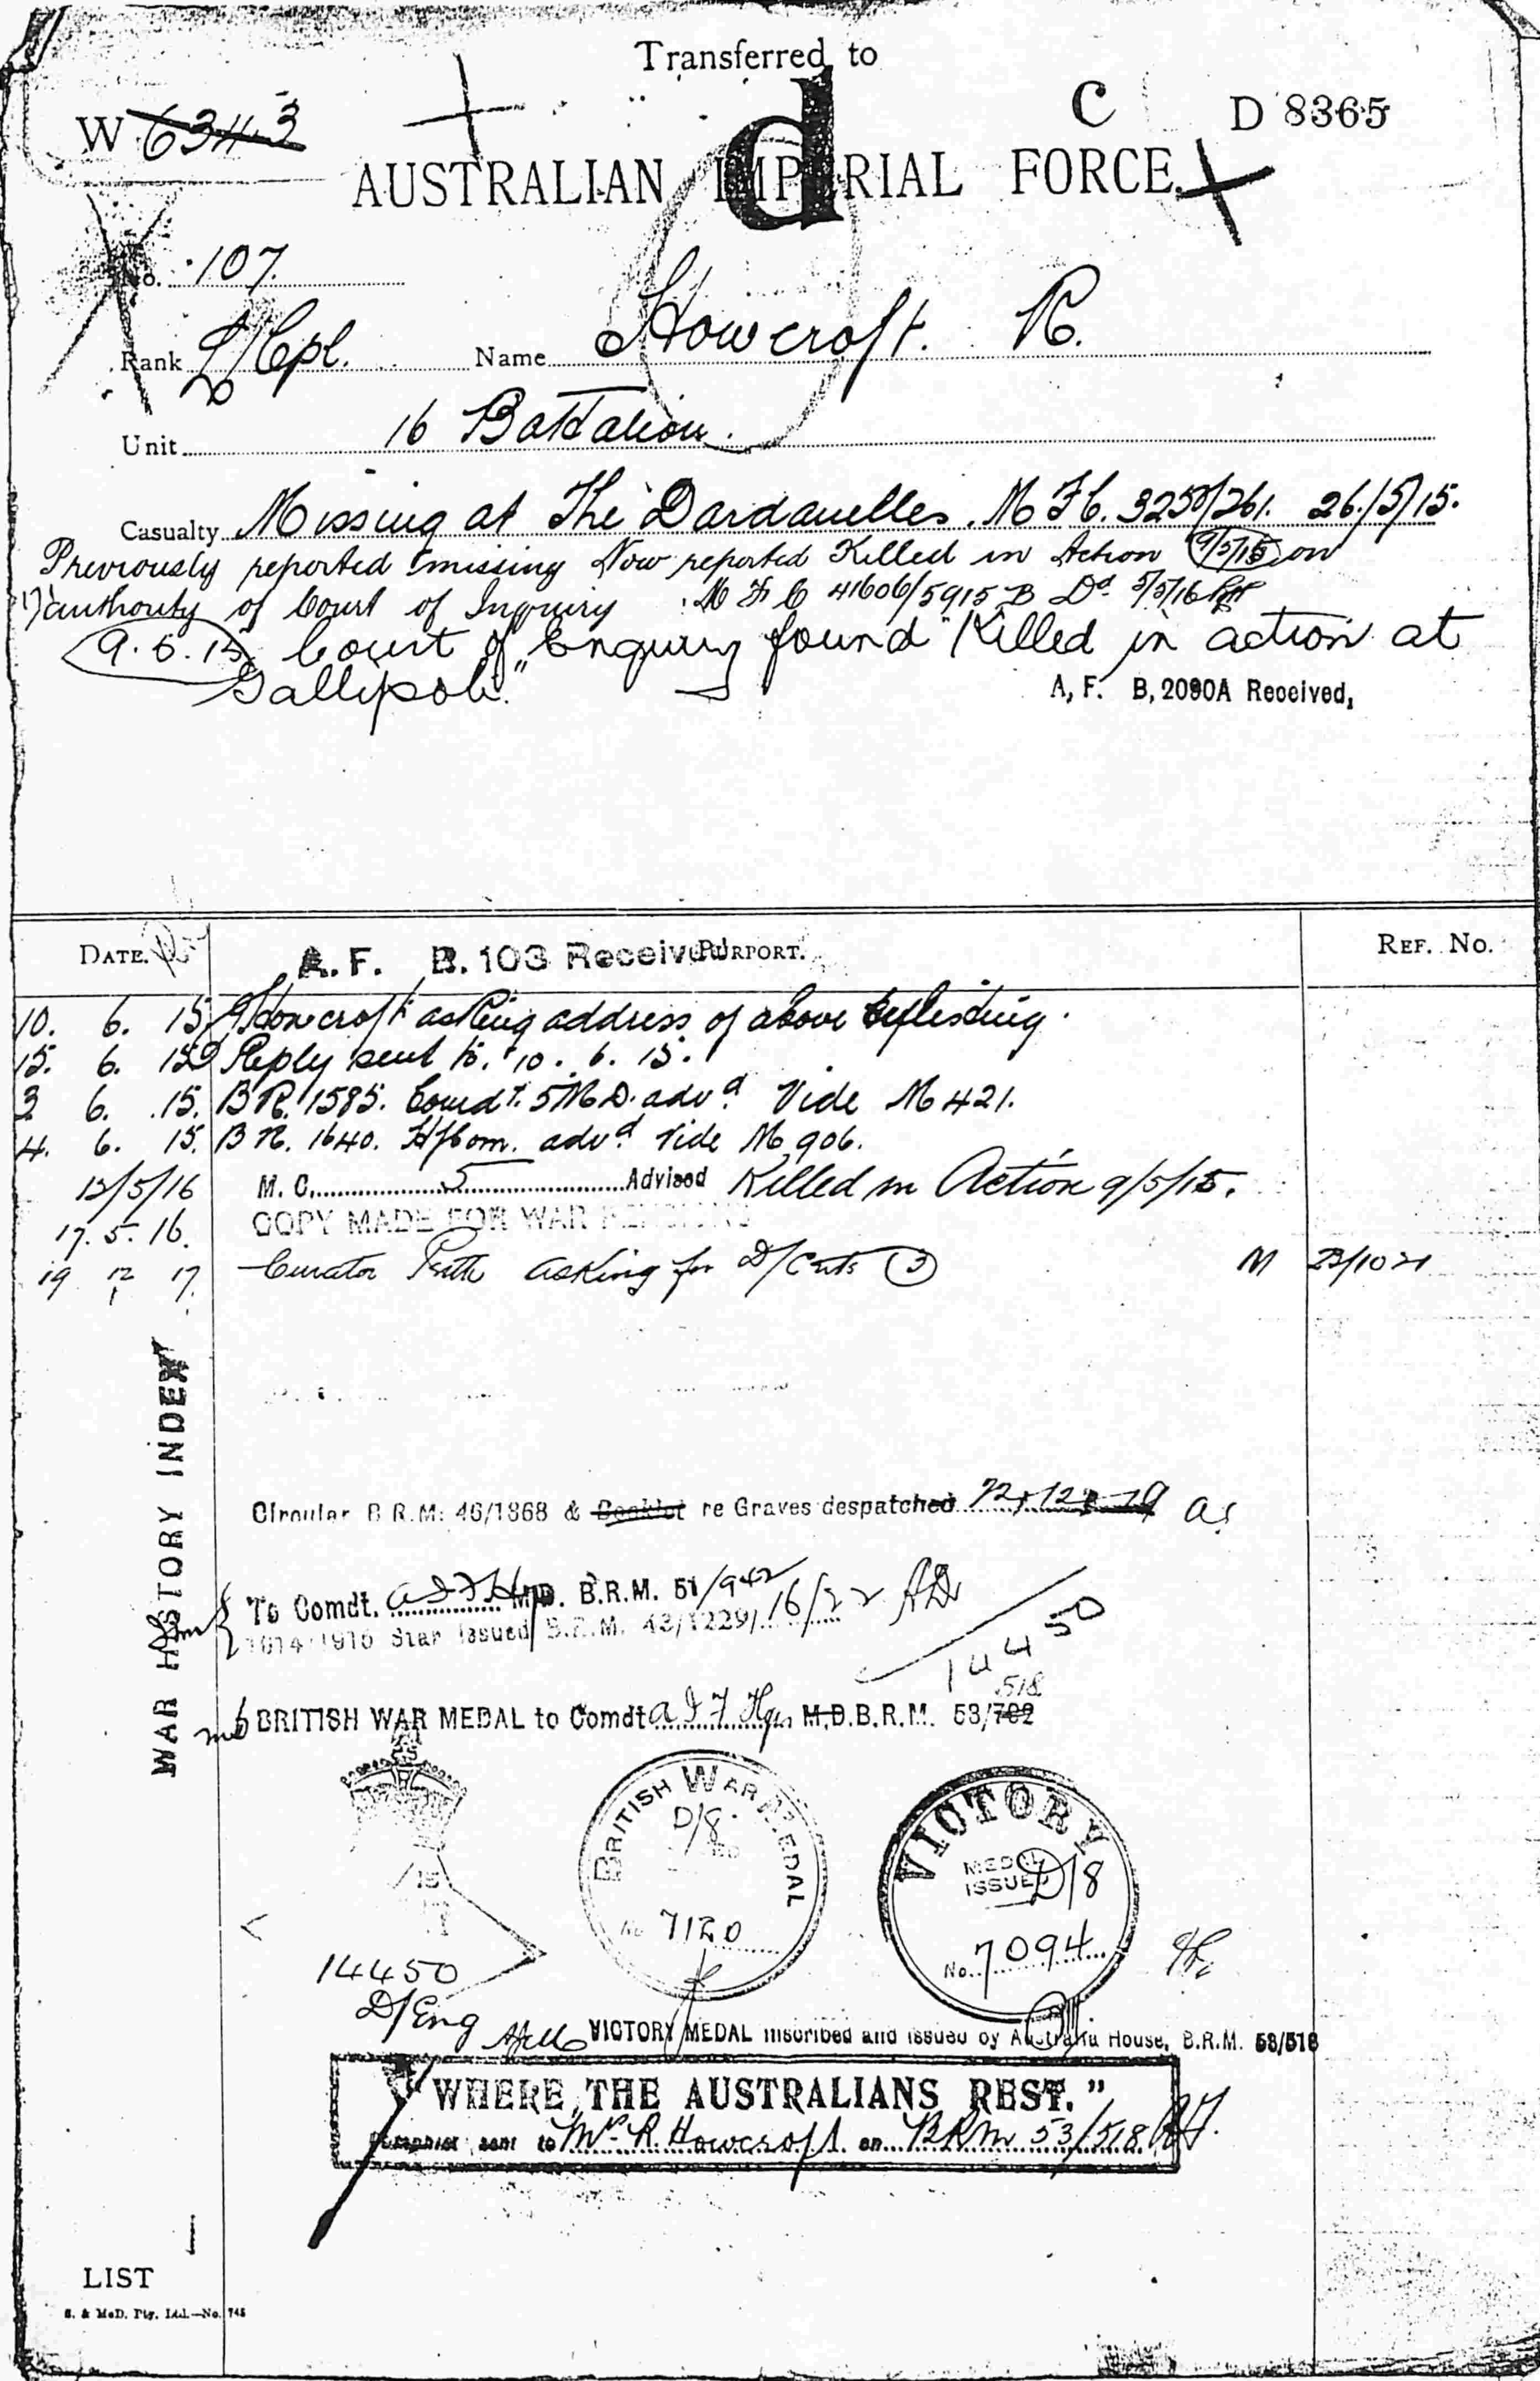 Transferred to
W 63113
C D 8365
d
AUSTRALIAN IMPERIAL FORCE.
No. 107.
Rank L/Cpl. Name Howcroft. R.
Unit 16 Battalion.
Casualty Missing at The Dardanelles. M F C. 3250/261. 26/5/15.
Previously reported missing Now reported Killed in Action 9/5/15 on
authority of Court of Inquiry M F C 41606/5915 B Dd. 5/5/16
9.5.15 Court of Enquiry found "Killed in action at
Gallipoli."
A, F. B, 2090A Received,
DATE. PURPORT. REF. No.
A. F. B. 103 Received
10. 6. 15 Howcroft asking address of above
15. 6. 15 Reply sent to. 10. 6. 15.
3 6. 15. B R. 1585. Comdt. 5 M D. advd. Vide M 421.
4. 6. 15. B R. 1640. H/Com. advd. Vide M 906.
13/5/16 M. C. 5 Advised Killed in Action 9/5/15.
17. 5. 16. COPY MADE FOR WAR PENSIONS
19 12 17. Curator Perth asking for D/Certs (3) M
WAR HISTORY INDEX
Circular B.R.M: 46/1868 & Booklet re Graves despatched 22.12.19
To Comdt. A I F Hqrs M.D. B.R.M. 51/942
1914/1915 Star issued B.R.M. 43/1229/ 16/22
14450
518
BRITISH WAR MEDAL to Comdt A I F Hqrs M.D. B.R.M. 53/702
BRITISH WAR MEDAL
D/8.
No 7120
VICTORY
MEDAL
ISSUED D/8
No. 7094
14450
D/Eng
VICTORY MEDAL inscribed and issued by Australia House, B.R.M. 53/518
"WHERE THE AUSTRALIANS REST."
Pamphlet sent to Mr. R. Howcroft on BRM 53/518
LIST
S. & McD. Pty. Ltd.—No. 745